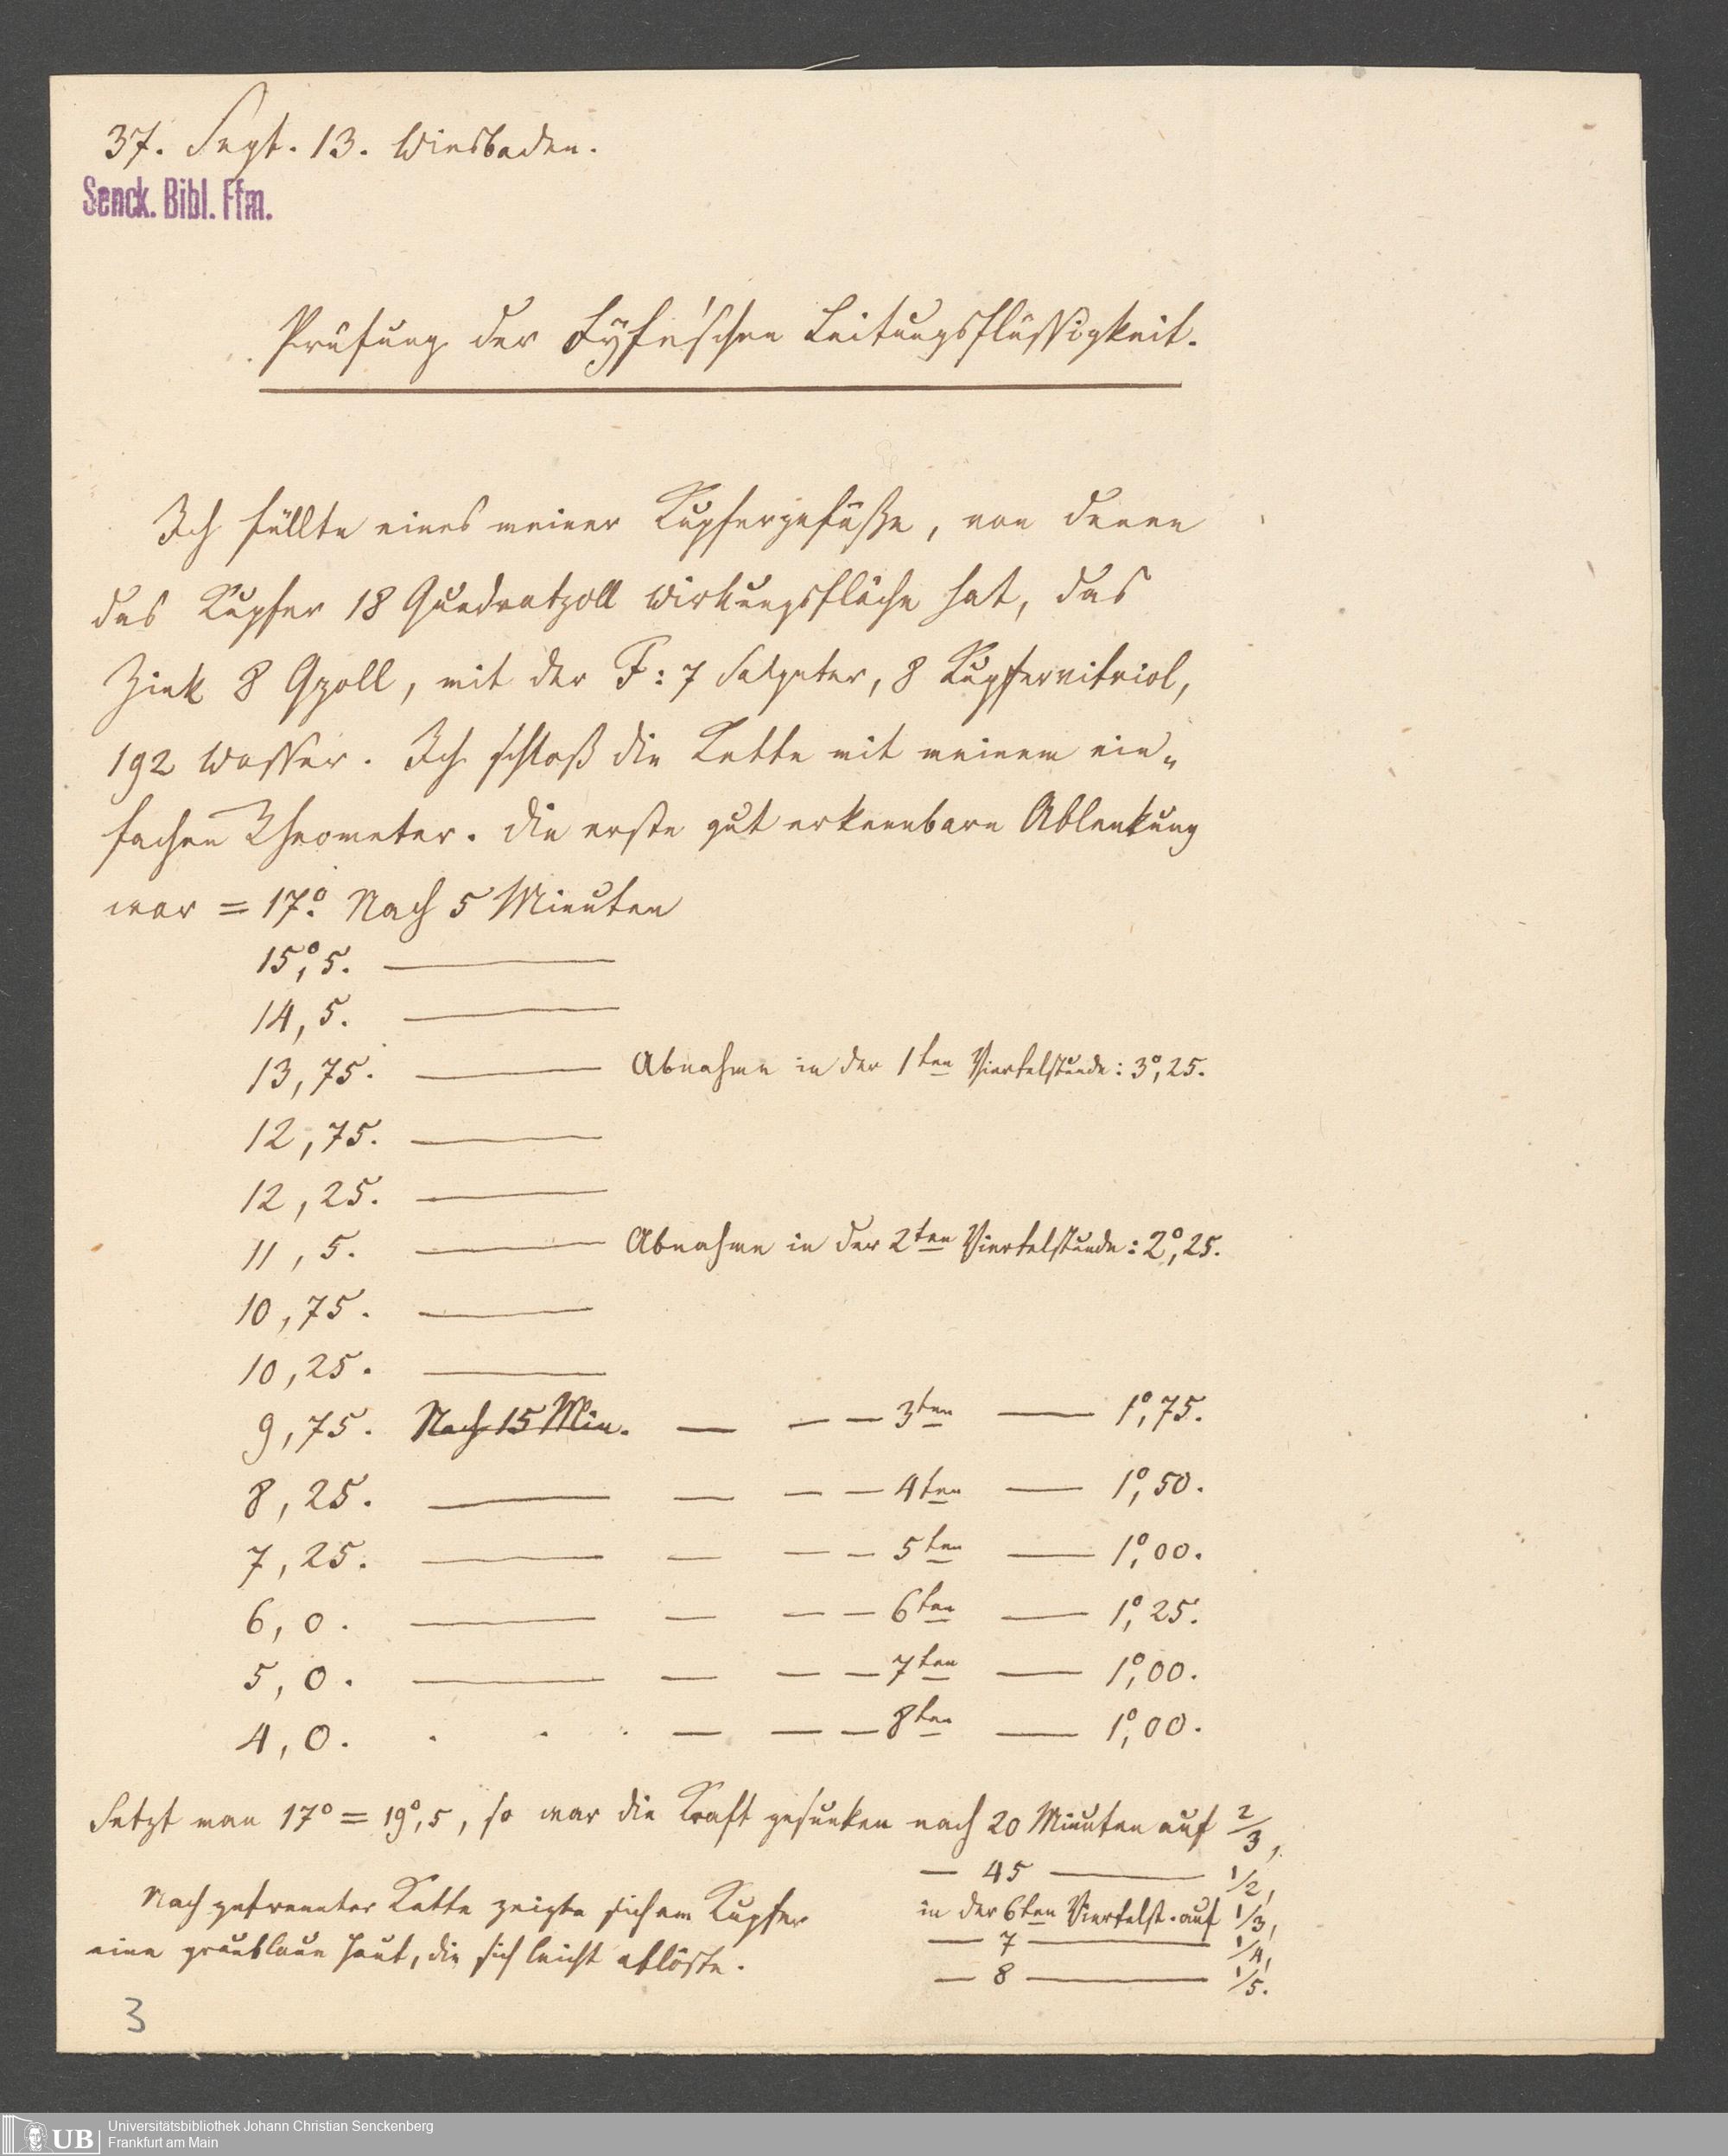 37. Sept. 13. Wiesbaden.
Senck. Bibl. Ffm.
Prüfung der Fyfe'schen Leitungsflüssigkeit.
Ich füllte eines meiner Kupfergefäße, von denen
das Kupfer 18 Quadratzoll Wirkungsfläche hat, das
Zink 8 Qzoll, mit der F: 7 Salpeter, 8 Kupfervitriol,
192 Wasser. Ich schloß die Kette mit meinem ein„
fachen Rheometer. Die erste gut erkennbare Ablenkung
war = 17°. Nach 5 Minuten
15°,5. ———
14,5. ———
13,75. ——— Abnahme in der 1ten Viertelstunde: 3°,25.
12,75. ———
12,25. ———
11,5. ——— Abnahme in der 2ten Viertelstunde: 2°,25.
10,75. ———
10,25. ———
9,75. Nach 15 Min. — — — 3ten — 1°,75.
8,25. ——— — — — 4ten — 1°,50.
7,25. ——— — — — 5ten — 1°,00.
6,0. ——— — — — 6ten — 1°,25.
5,0. ——— — — — 7ten — 1°,00.
4,0. . . . — — — 8ten — 1°,00.
Setzt man 17° = 19°,5, so war die Kraft gesunken nach 20 Minuten auf 2/3,
— 45 ——— 1/2,
in der 6ten Viertelst. auf 1/3,
— 7 ——— 1/4,
— 8 ——— 1/5.
Nach getrennter Kette zeigte sich am Kupfer
eine graublaue Haut, die sich leicht ablöste.
3
UB
Universitätsbibliothek Johann Christian Senckenberg
Frankfurt am Main